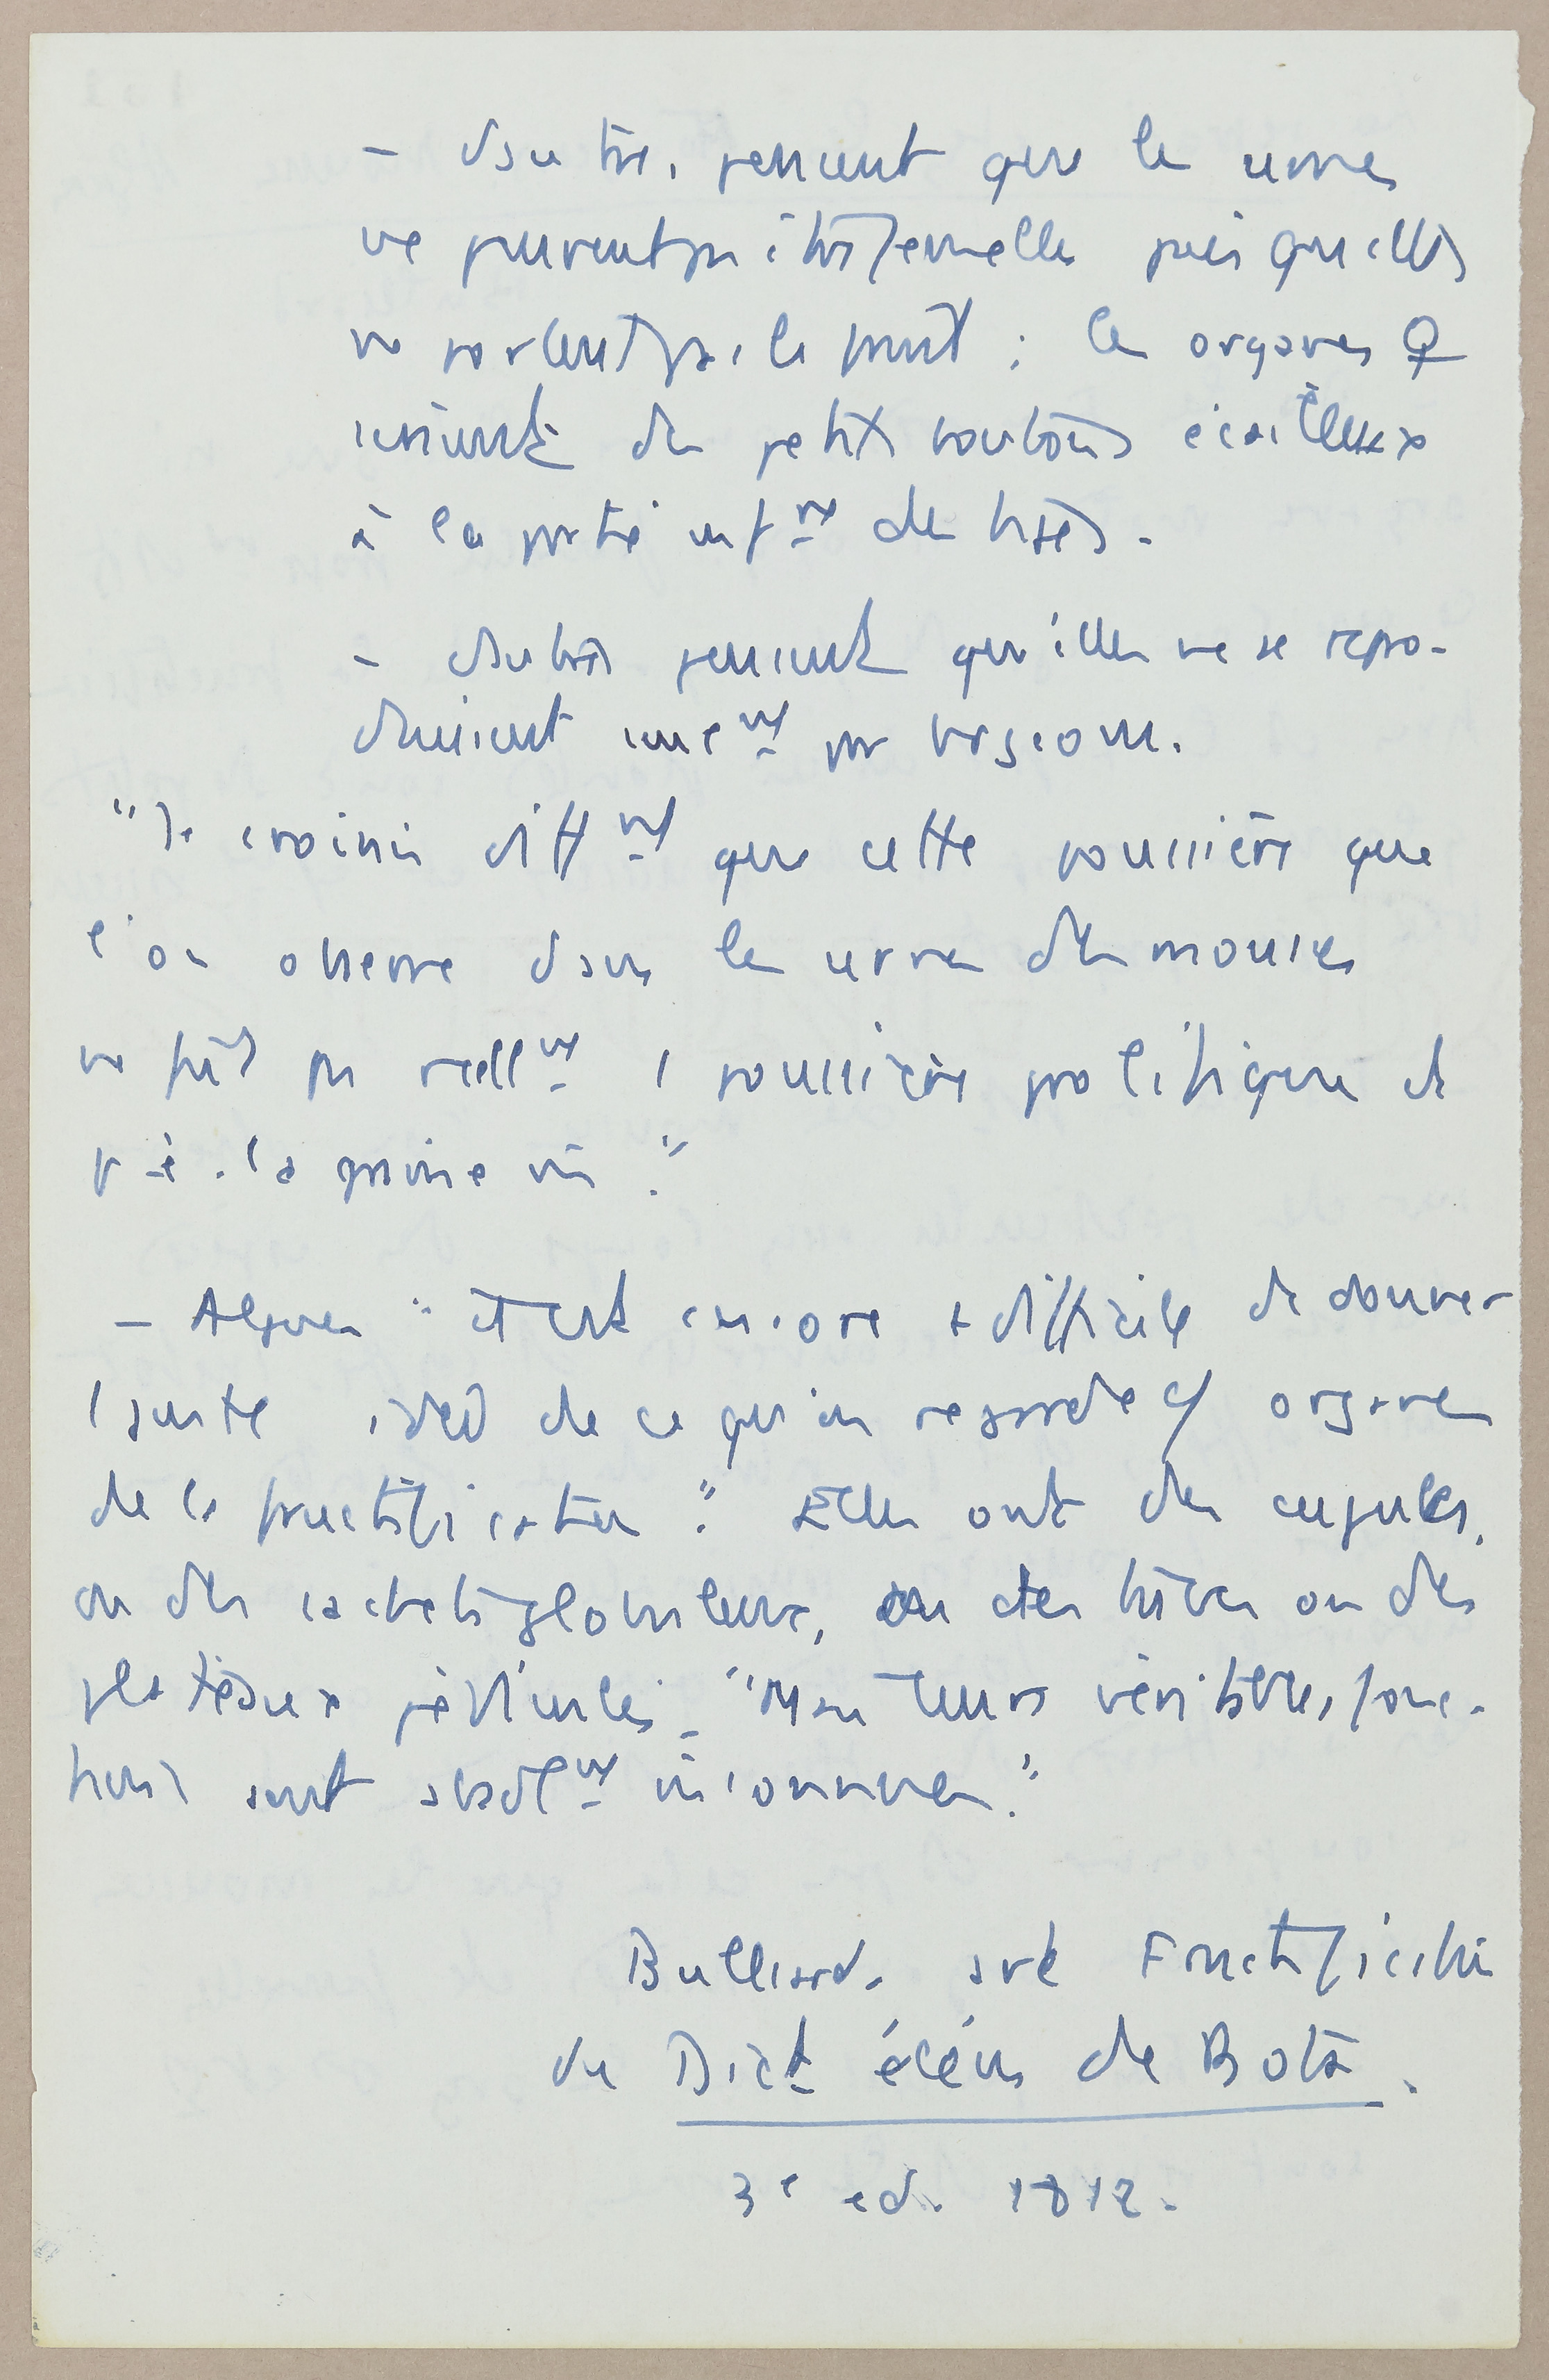 - d'autres pensent que les urnes
ne peuvent pas être femelles puisqu'elles
ne portent pas le fruit ; les organes ♀
seraient des petits boutons écailleux
à la partie infre des tiges.
- d'autres pensent qu'elles ne se repro-
duisent uniqmt par
"Je croirais difft que cette poussière que
l'on observe dans les urnes des mousses
ne fût pas réellmt 1 poussière prolifique et
la graine
- Algues "il est encore + difficile de donner
1 juste idée de ce qu'on regarde c/ organes
de la fructification". Elles ont des cupules,
ou des globuleux, ou des ou des
plateaux pédiculés. "Mais leurs véritables fonc-
tions sont absolmt inconnues."
Bulliard. art Fructificatn
du Dict élém de Bota.
3e ed. 1812.